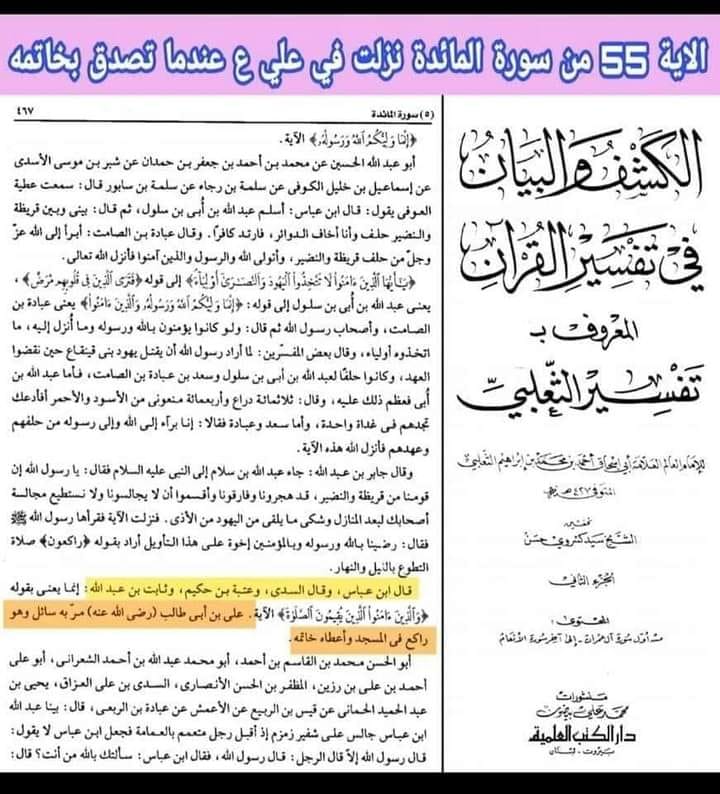 الاية 55 من سورة المائدة نزلت في علي ع عندما تصدق بخاتمه
الكشف والبيان
في تفسير القرآن
المعروف بـ
تفسير الثعلبي
للإمام العالم العلامة أبي إسحاق أحمد بن محمد بن إبراهيم الثعلبي
المتوفى ٤٢٧ هـ
تحقيق
الشيخ سيد كسروي حسن
الجزء الثاني
المحتوى:
من أول سورة آل عمران - إلى آخر سورة الأنعام
منشورات
محمد علي بيضون
دار الكتب العلمية
بيروت - لبنان
(٥) سورة المائدة ٤٦٧
﴿إِنَّمَا وَلِيُّكُمُ اللَّهُ وَرَسُولُهُ﴾ الآية.
أبو عبد الله الحسين عن محمد بن أحمد بن جعفر بن حمدان عن شبر بن موسى الأسدى
عن إسماعيل بن خليل الكوفى عن سلمة بن رجاء عن سلمة بن سابور قال: سمعت عطية
العوفى يقول: قال ابن عباس: أسلم عبد الله بن أُبي بن سلول، ثم قال: بينى وبين قريظة
والنضير حلف وأنا أخاف الدوائر، فارتد كافرًا. وقال عبادة بن الصامت: أبرأ إلى الله عزّ
وجلّ من حلف قريظة والنضير، وأتولى الله والرسول والذين آمنوا فأنزل الله تعالى.
﴿يَٰٓأَيُّهَا ٱلَّذِينَ ءَامَنُوا۟ لَا تَتَّخِذُوا۟ ٱلْيَهُودَ وَٱلنَّصَٰرَىٰٓ أَوْلِيَآءَ﴾ إلى قوله ﴿فَتَرَى ٱلَّذِينَ فِى قُلُوبِهِم مَّرَضٌ﴾،
يعنى عبد الله بن أُبي بن سلول إلى قوله: ﴿إِنَّمَا وَلِيُّكُمُ ٱللَّهُ وَرَسُولُهُۥ وَٱلَّذِينَ ءَامَنُوا۟﴾ يعنى عبادة بن
الصامت، وأصحاب رسول الله ثم قال: ولو كانوا يؤمنون بالله ورسوله وما أُنزل إليه، ما
اتخذوه أولياء، وقال بعض المفسّرين: لما أراد رسول الله أن يقتل يهود بنى قينقاع حين نقضوا
العهد، وكانوا حلفًا لعبد الله بن أبي بن سلول وسعد بن عبادة بن الصامت، فأما عبد الله بن
أُبي فعظم ذلك عليه، وقال: ثلاثمائة دراع وأربعمائة منعونى من الأسود والأحمر أفأدعك
تجدهم فى غداة واحدة، وأما سعد وعبادة فقالا: إنا برآء إلى الله وإلى رسوله من حلفهم
وعهدهم فأنزل الله هذه الآية.
وقال جابر بن عبد الله: جاء عبد الله بن سلام إلى النبى عليه السلام فقال: يا رسول الله إن
قومنا من قريظة والنضير، قد هجرونا وفارقونا وأقسموا أن لا يجالسونا ولا نستطيع مجالسة
أصحابك لبعد المنازل وشكى ما يلقى من اليهود من الأذى. فنزلت الآية فقرأها رسول الله ﷺ
فقال: رضينا بالله ورسوله وبالمؤمنين إخوة على هذا التأويل أراد بقوله ﴿راكعون﴾ صلاة
التطوع بالليل والنهار.
قال ابن عباس، وقال السدى، وعتبة بن حكيم، وثابت بن عبد الله: إنما يعنى بقوله
﴿وَٱلَّذِينَ ءَامَنُوا۟ ٱلَّذِينَ يُقِيمُونَ ٱلصَّلَوٰةَ﴾ الآية. على بن أبى طالب (رضى الله عنه) مرّ به سائل وهو
راكع فى المسجد وأعطاه خاتمه.
أبو الحسن محمد بن القاسم بن أحمد، أبو محمد عبد الله بن أحمد الشعرانى، أبو على
أحمد بن على بن رزين، المظفر بن الحسن الأنصارى، السدى بن على العزاق، يحيى بن
عبد الحميد الحمانى عن قيس بن الربيع عن الأعمش عن عباية بن الربعى، قال: بينا عبد الله
ابن عباس جالس على شفير زمزم إذ أقبل رجل متعمم بالعمامة فجعل ابن عباس لا يقول:
قال رسول الله إلاّ قال الرجل: قال رسول الله، فقال ابن عباس: سألتك بالله من أنت؟ قال: